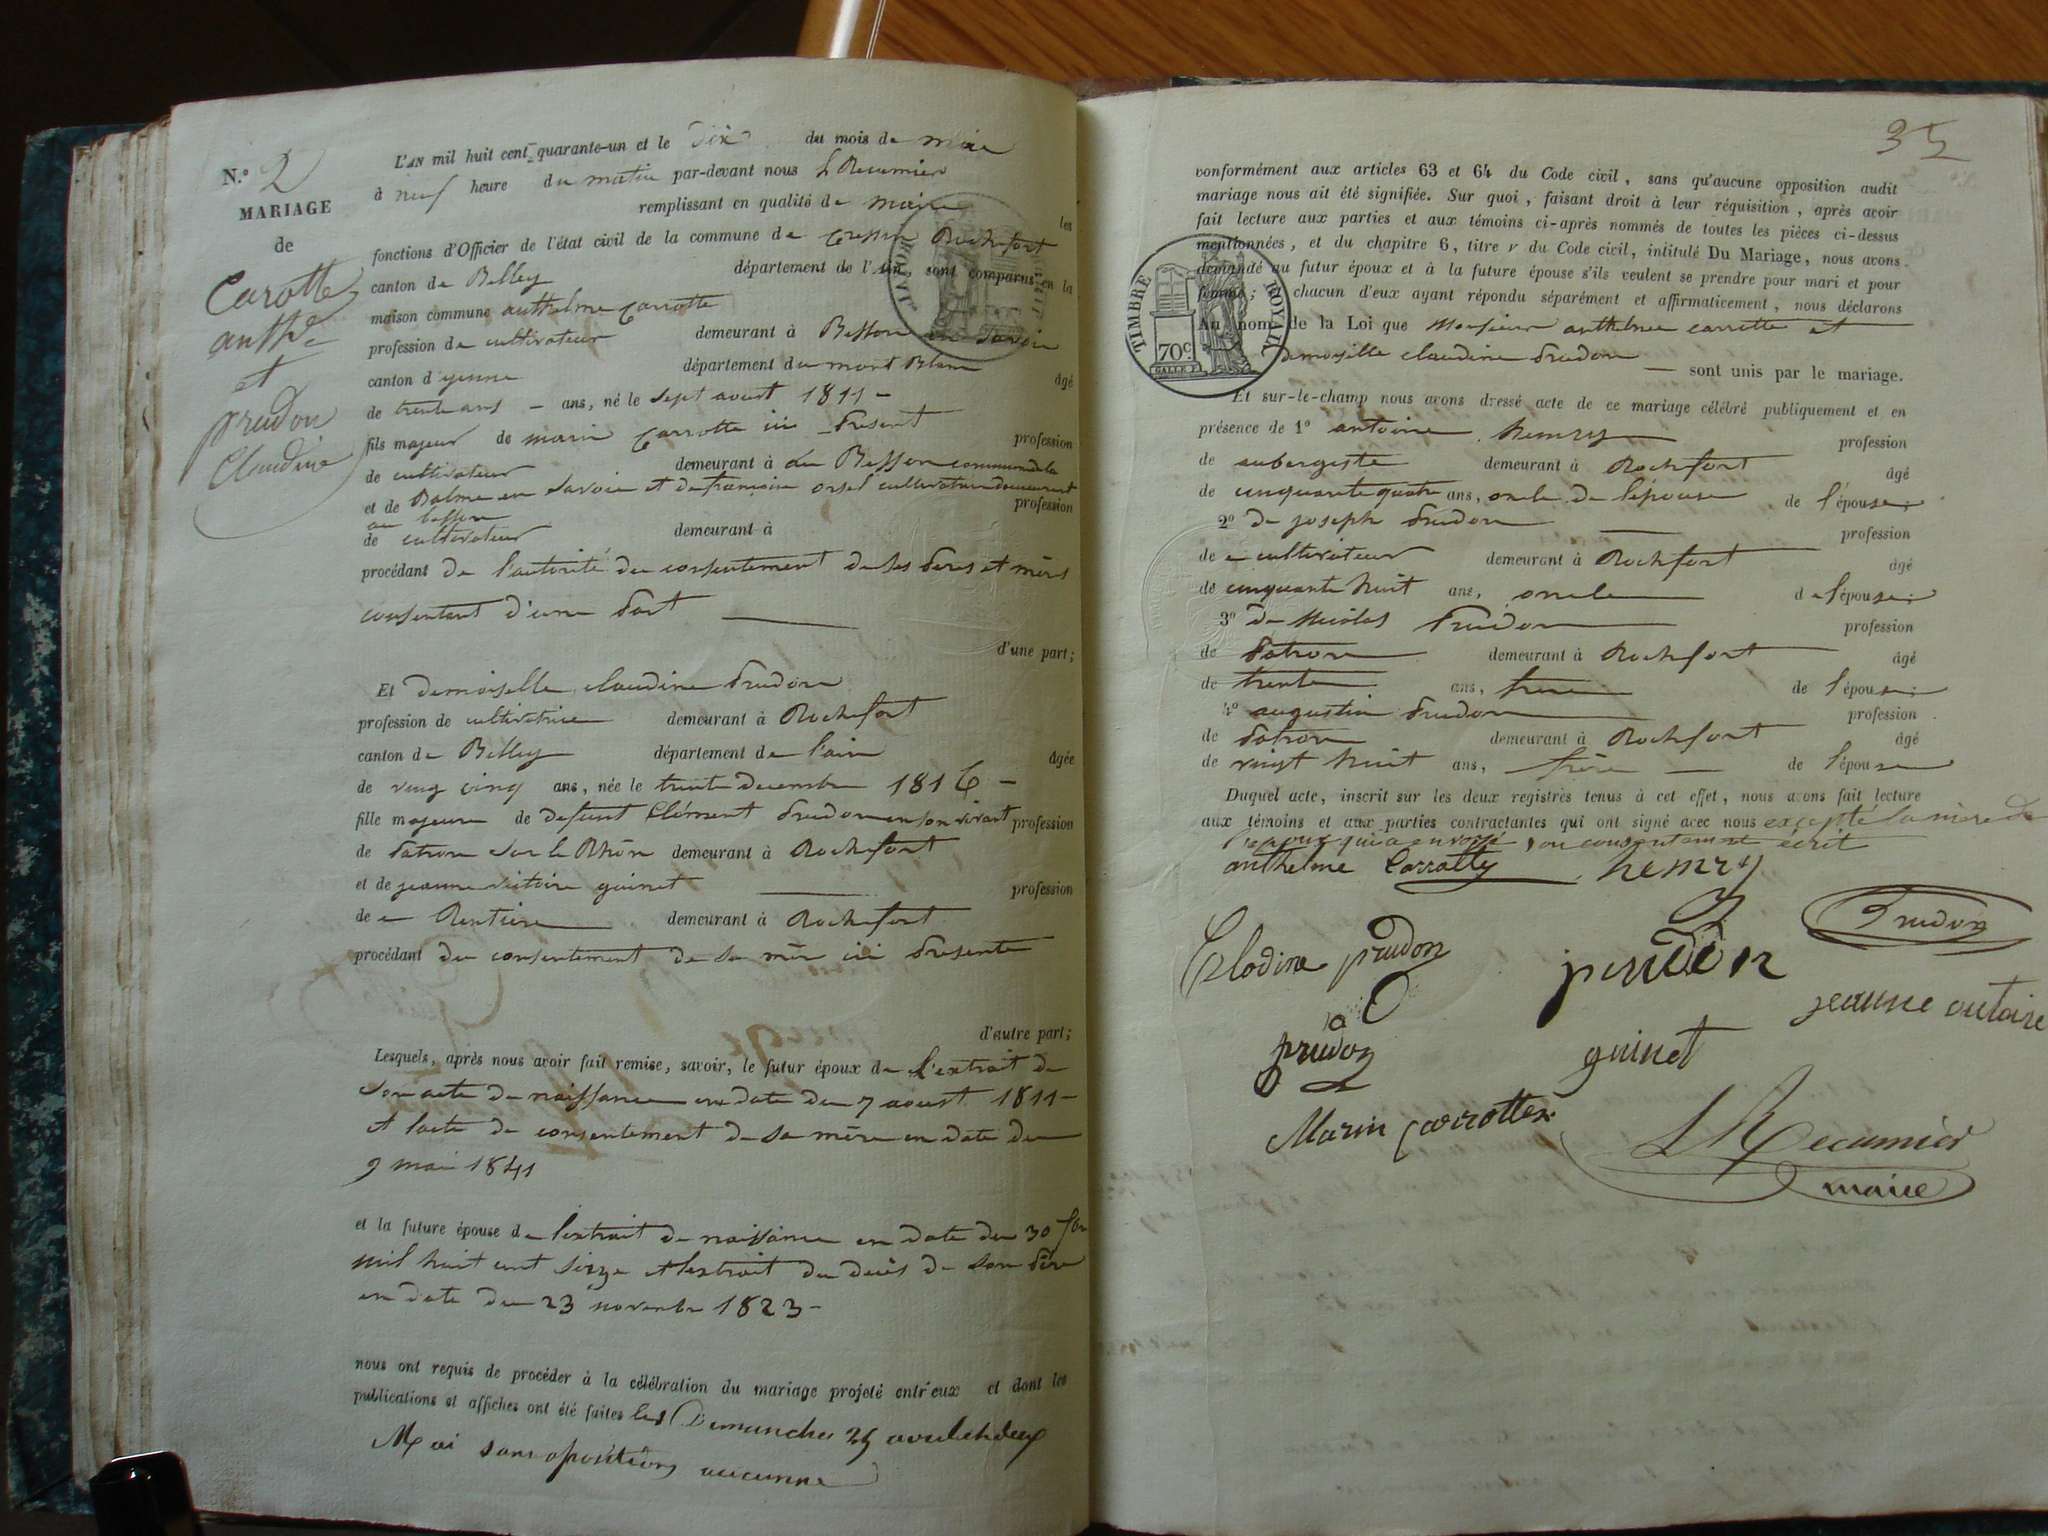 N.º 2
MARIAGE
de
Carotte
anth.e
et
prudon
Claudine
L'AN mil huit cent quarante-un et le dix du mois de mai
à neuf heure du matin par-devant nous L Recumier
remplissant en qualité de maire les
fonctions d'Officier de l'état civil de la commune de Cressin Rochefort
canton de Belley département de l'Ain, sont comparus en la
maison commune anthelme Carrotte
profession de cultivateur demeurant à Besson en Savoie
canton d'yenne département du mont Blanc âgé
de trente ans — ans, né le sept aoust 1811 —
fils majeur de marin Carrotte ici présent profession
de cultivateur demeurant à au Besson commune de la
et de Balme en Savoie et de françoise orsel cultivatrice demeurant profession
au besson
de cultivateur demeurant à
procédant de l'autorité du consentement de ses peres et mères
consentant d'une part
d'une part;
Et demoiselle claudine prudon
profession de cultivatrice demeurant à Rochefort
canton de Belley département de l'ain âgée
de ving cinq ans, née le trente decembre 1816 —
fille majeure de defunt Clément prudon en son vivant profession
de patron sur le Rhône demeurant à Rochefort
et de jeanne victoire guinet profession
de Rentière demeurant à Rochefort
procédant du consentement de sa mèr ici presente
d'autre part;
Lesquels, après nous avoir fait remise, savoir, le futur époux de l'extrait de
son acte de naissance en date du 7 aoust 1811 —
et lacte de consentement de sa mère en date du
9 mai 1841
et la future épouse de lextrait de naissance en date du 30
mil huit cent seize et lextrait du decès de son père
en date du 23 novembre 1823 —
nous ont requis de procéder à la célébration du mariage projeté entr'eux et dont les
publications et affiches ont été faites les Dimanches 25 avril et deux
Mai sans opposition aucunne
35
conformément aux articles 63 et 64 du Code civil, sans qu'aucune opposition audit
mariage nous ait été signifiée. Sur quoi, faisant droit à leur réquisition, après avoir
fait lecture aux parties et aux témoins ci-après nommés de toutes les pièces ci-dessus
mentionnées, et du chapitre 6, titre v du Code civil, intitulé Du Mariage, nous avons
demandé au futur époux et à la future épouse s'ils veulent se prendre pour mari et pour
femme; chacun d'eux ayant répondu séparément et affirmaticement, nous déclarons
Au nom de la Loi que Monsieur anthelme carrotte et
demoiselle claudine prudon
— sont unis par le mariage.
TIMBRE ROYAL
70c
Et sur-le-champ nous avons dressé acte de ce mariage célébré publiquement et en
présence de 1º antoine hemry profession
de aubergiste demeurant à Rochefort âgé
de cinquante quatre ans, oncle de l'épouse de l'épouse;
2º de joseph prudon profession
de cultivateur demeurant à Rochefort âgé
de cinquante huit ans, oncle de l'épouse;
3º de Nicolas prudon profession
de patron demeurant à Rochefort âgé
de trente ans, frère de l'épouse;
4º augustin prudon profession
de patron demeurant à Rochefort âgé
de vingt huit ans, frère — de l'épouse
Duquel acte, inscrit sur les deux registres tenus à cet effet, nous avons fait lecture
aux témoins et aux parties contractantes qui ont signé avec nous excepté la mère de
l'epoux qui a envoyé son consentement écrit
anthelme Carrotty hemry
Prudon
Clodine prudon prudon
jeanne victoire
prudon guinet
Marin Carrotte
L Recumier
maire